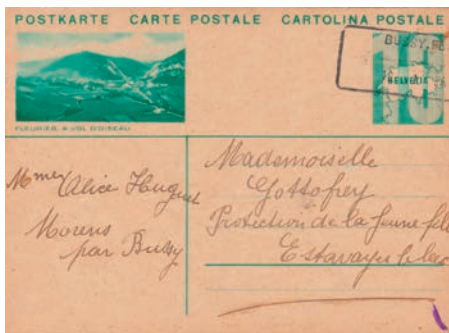 POSTKARTE CARTE POSTALE CARTOLINA POSTALE
BUSSY
HELVETIA
FLEURIER A VOL D'OISEAU
Mme Alice Huguet
Morens
par Bussy
Mademoiselle
Gottofrey
Protection de la Jeune fille
Estavayer le lac